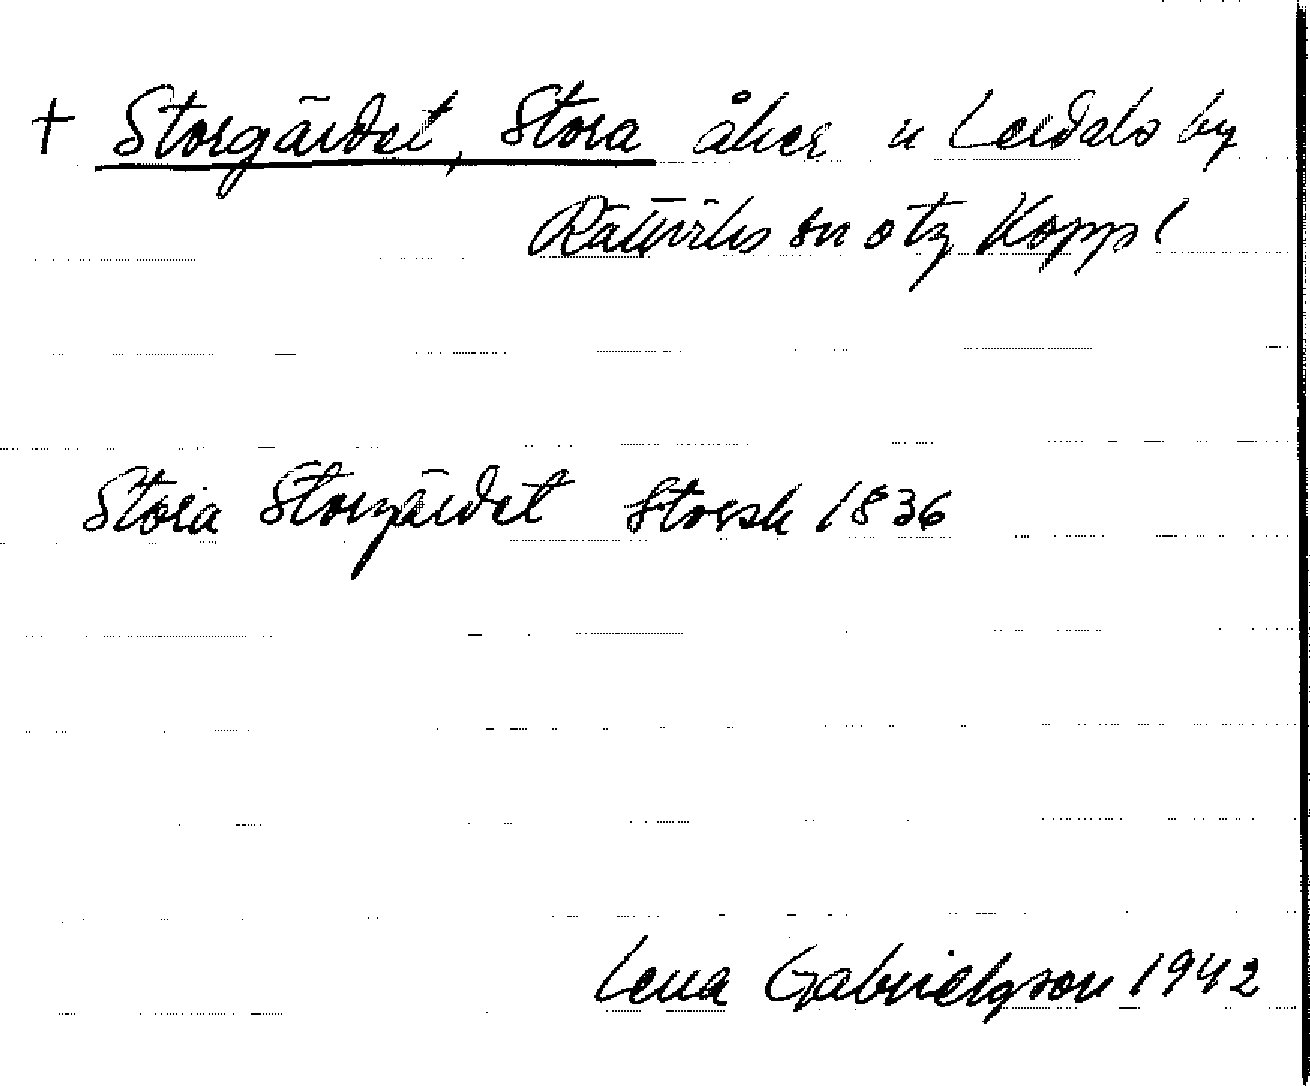 + Storgärdet, Stora åker u Lerdals by
Rättviks sn o tg Kopp l
Stora Storgärdet Storsk 1836
Lena Gabrielsson 1942